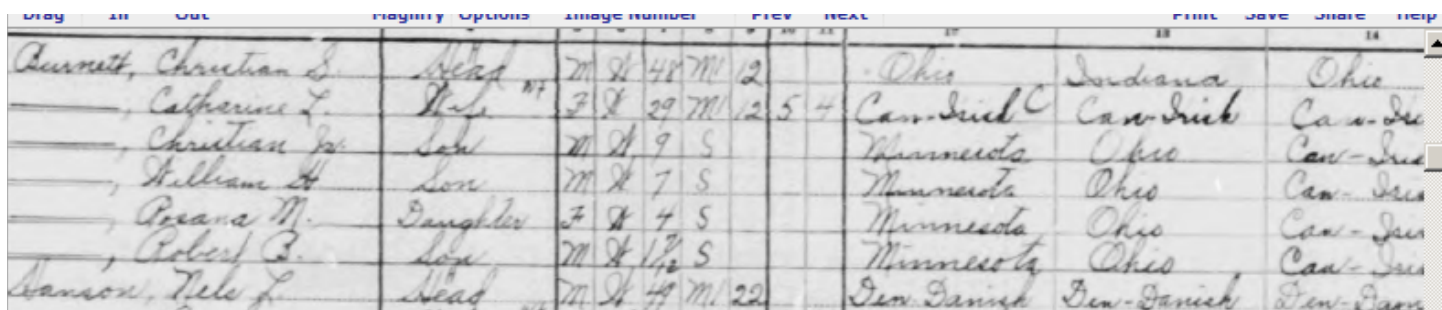 Drag In Out Magnify Options Image Number Prev Next Print Save Share Help
17 18 19
Burnett, Christian S. Head M W 48 M1 12 Ohio Indiana Ohio
———, Catharine L. Wife F W 29 M1 12 5 4 Can-Irish C Can-Irish Can-Iri
———, Christian Jr. Son M W 9 S Minnesota Ohio Can-Iris
———, William H Son M W 7 S Minnesota Ohio Can-Iris
———, Rosana M. Daughter F W 4 S Minnesota Ohio Can-Iris
———, Robert B. Son M W S Minnesota Ohio Can-Iris
Hanson, Nels L. Head M W 49 M1 22 Den-Danish Den-Danish Den-Dani